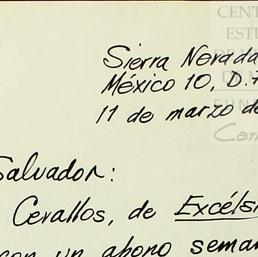 CENT
ESTU
Sierra Nevada
México 10, D.F
11 de marzo de
Salvador:
Cevallos, de Excélsi
con un abono seman